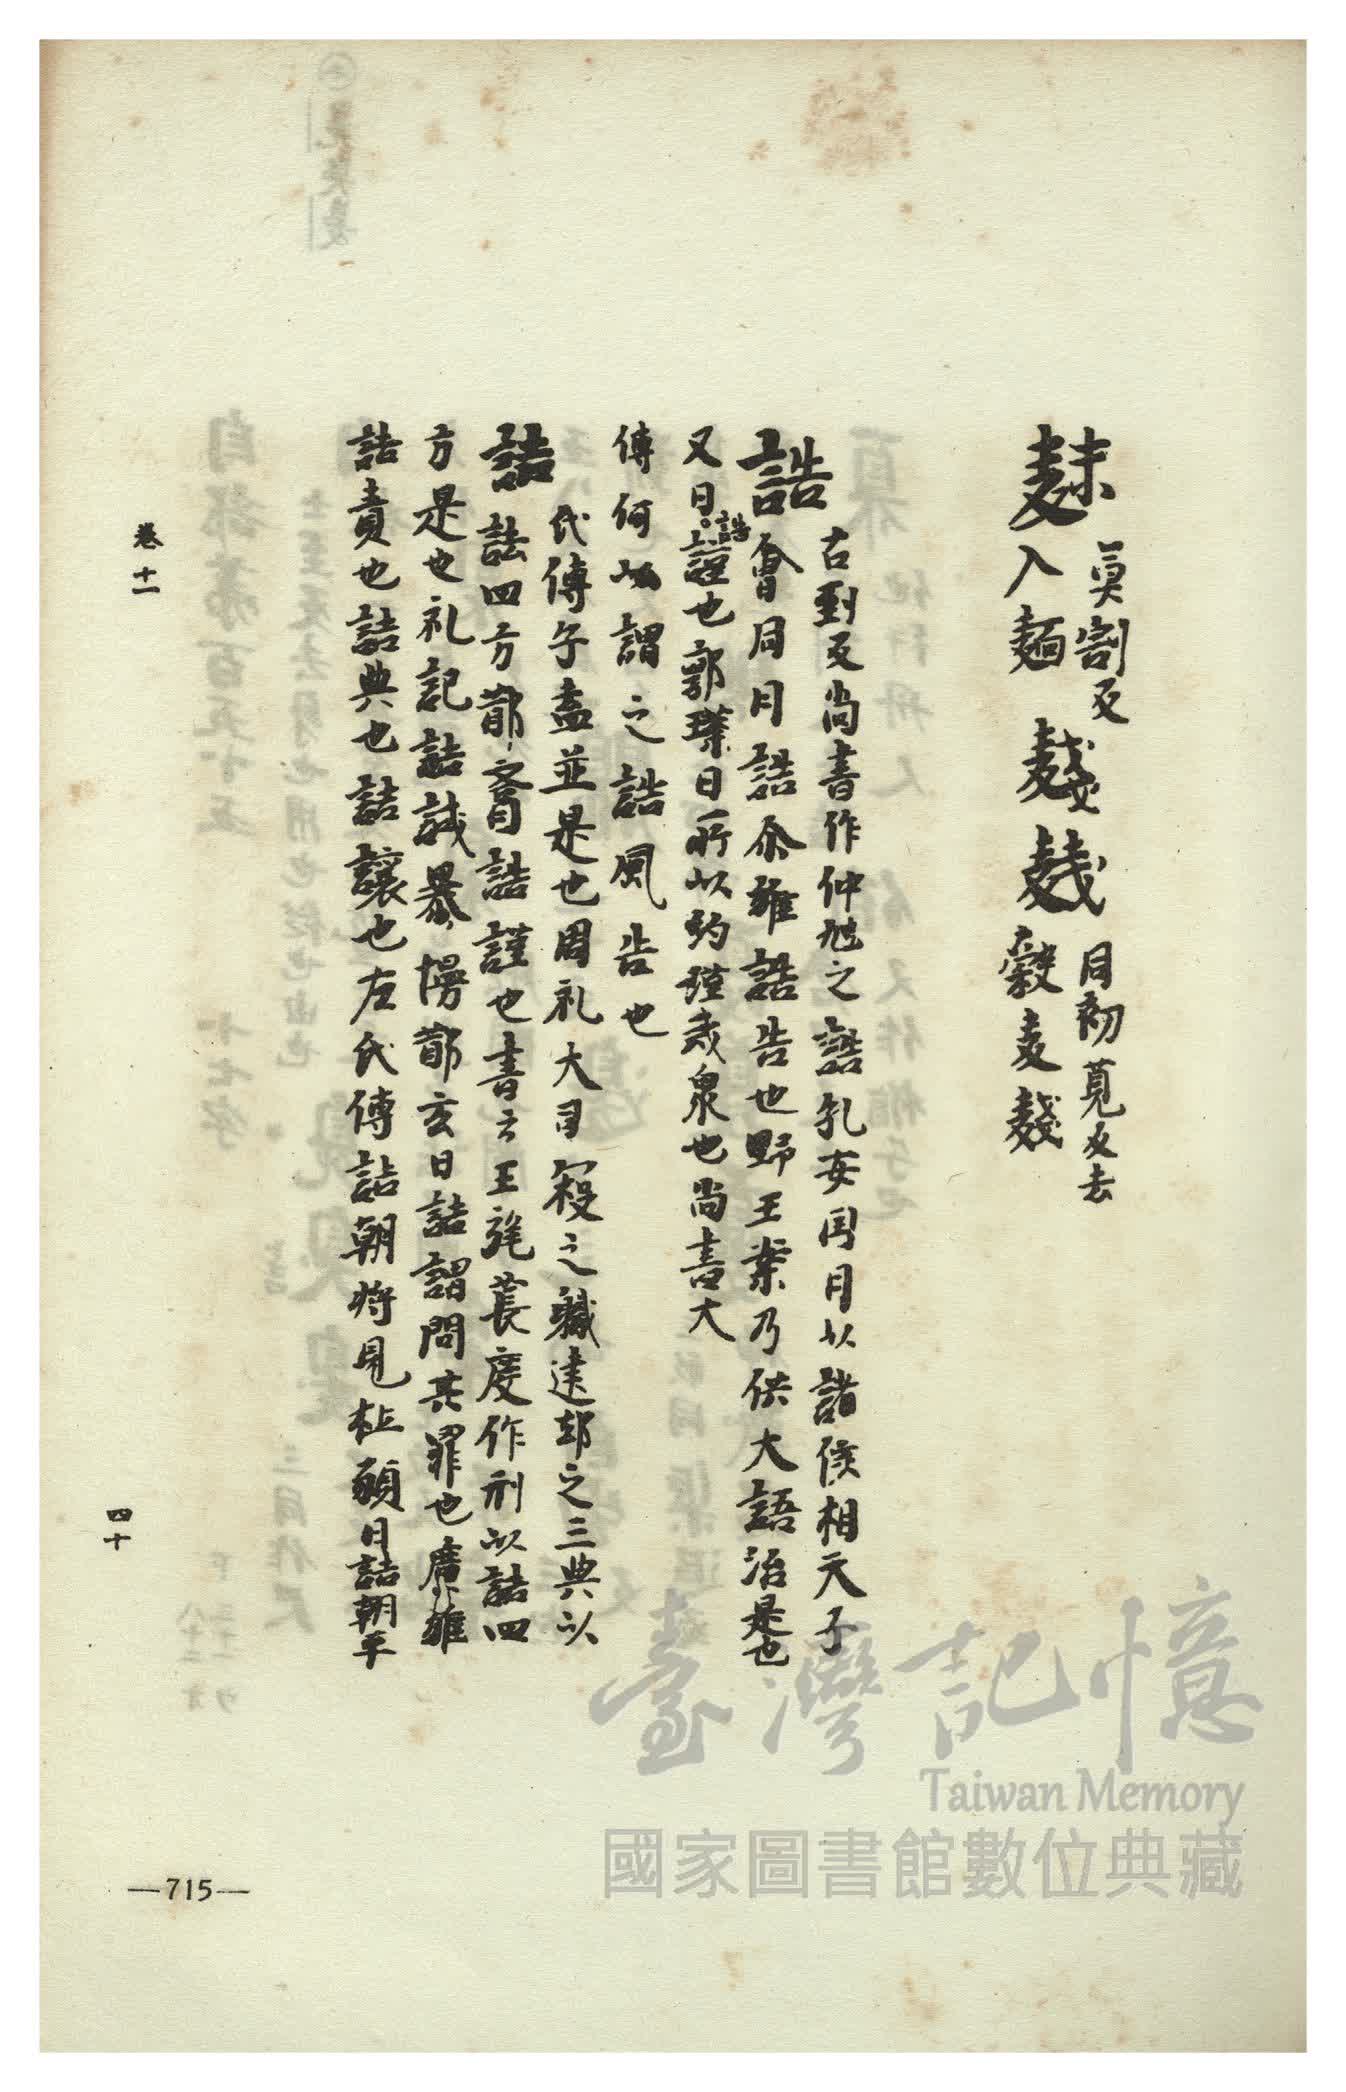 䴲 莫割反
入麺 䴼𪌧 同初莧反去
穀麦䴼
古到反尚書作仲虺之誥孔安国曰以諸侯相天子
誥 會同曰誥尒雅誥告也野王案乃供大語治是也
又曰誥謹也郭璞曰所以約謹戒衆也尚書大
傳何以謂之誥風告也
氏傳子盍並是也周礼大司寇之軄建邦之三典以
詰 詰四方鄭玄曰詰謹也書云王耄荒度作刑以詰四
方是也礼記詰誅暴慢鄭玄曰詰謂問其罪也廣雅
詰責也詰典也詰讓也左氏傳詰朝将見杜預曰詰朝平
卷十一
四十
—715—
臺灣記憶
Taiwan Memory
國家圖書館數位典藏